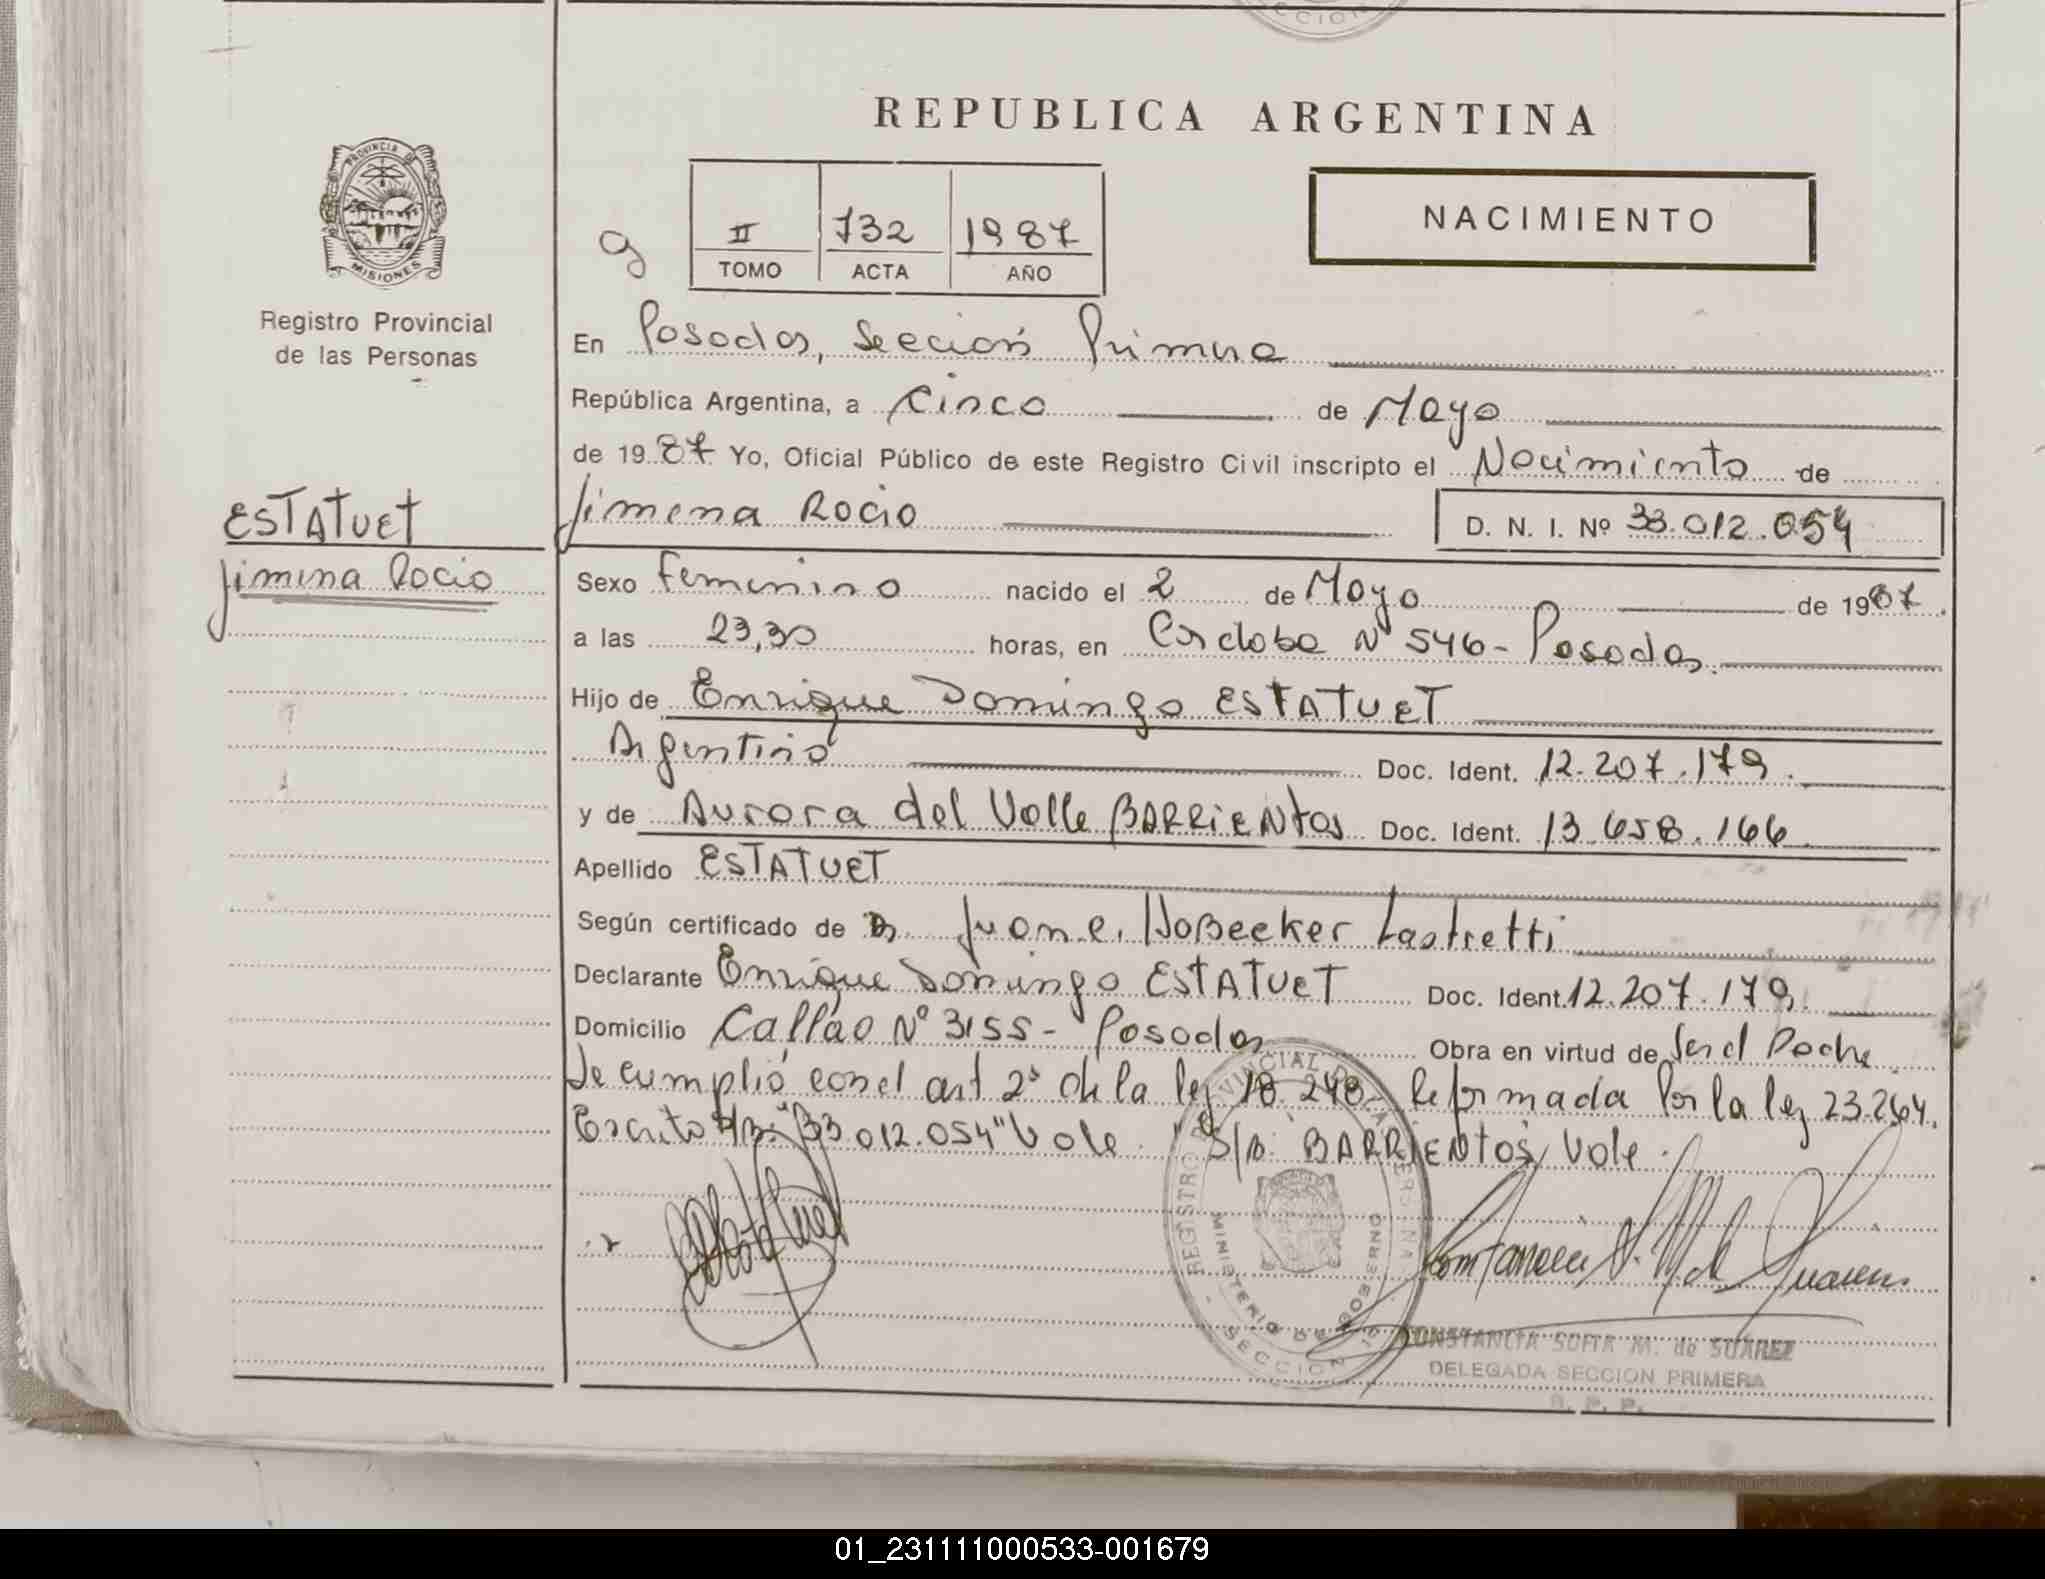 SECCION
REPUBLICA ARGENTINA
PROVINCIA DE
MISIONES
Registro Provincial
de las Personas
ESTATUET
Jimena Rocio
g
II 732 1987
TOMO ACTA AÑO
NACIMIENTO
En Posadas, Sección Primera
República Argentina, a Cinco de Mayo
de 1987 Yo, Oficial Público de este Registro Civil inscripto el Nacimiento de
Jimena Rocio D. N. I. Nº 33.012.054
Sexo Femenino nacido el 2 de Mayo de 1987
a las 23,30 horas, en Cordoba Nº 546 - Posadas.
Hijo de Enrique Domingo ESTATUET
Argentino Doc. Ident. 12.207.179.
y de Aurora del Valle BARRIENTOS Doc. Ident. 13.658.166.
Apellido ESTATUET
Según certificado de Juan e. Lastretti
Declarante Enrique Domingo ESTATUET Doc. Ident. 12.207.179.
Domicilio Callao Nº 3155 - Posadas Obra en virtud de Ser el Padre.
Se cumplió con el art 2º de la ley 18.248 - Reformada Por la ley 23.264.
Escrito s/B: "33.012.054" Vale. "S/B: BARRIENTOS, Vale.
REGISTRO PROVINCIAL DE LAS PERSONAS
MINISTERIO DE GOBIERNO
SECCION 1
CONSTANCIA SOFIA M. de SUAREZ
DELEGADA SECCION PRIMERA
R. P. P.
01_231111000533-001679